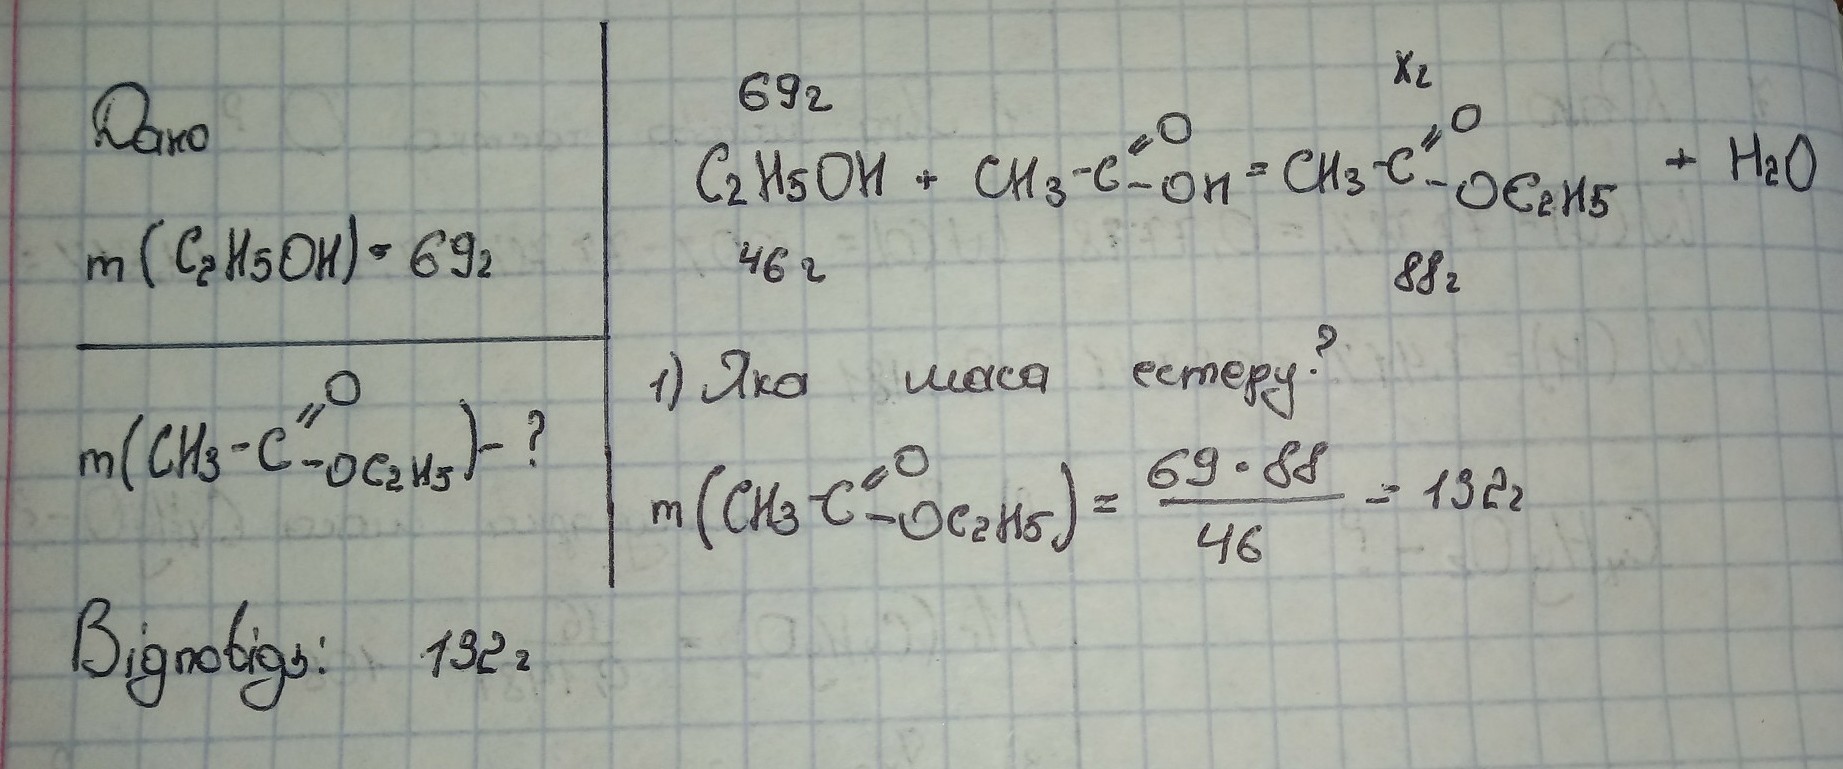 Дано
m(C2H5OH)= 69г
m(CH3-C=O-OC2H5)-?
69г xг
C2H5OH + CH3-C=O-OH = CH3-C=O-OC2H5 + H2O
46г 88г
1) Яка маса естеру?
m(CH3-C=O-OC2H5) = 69·88/46 = 132г
Відповідь: 132г